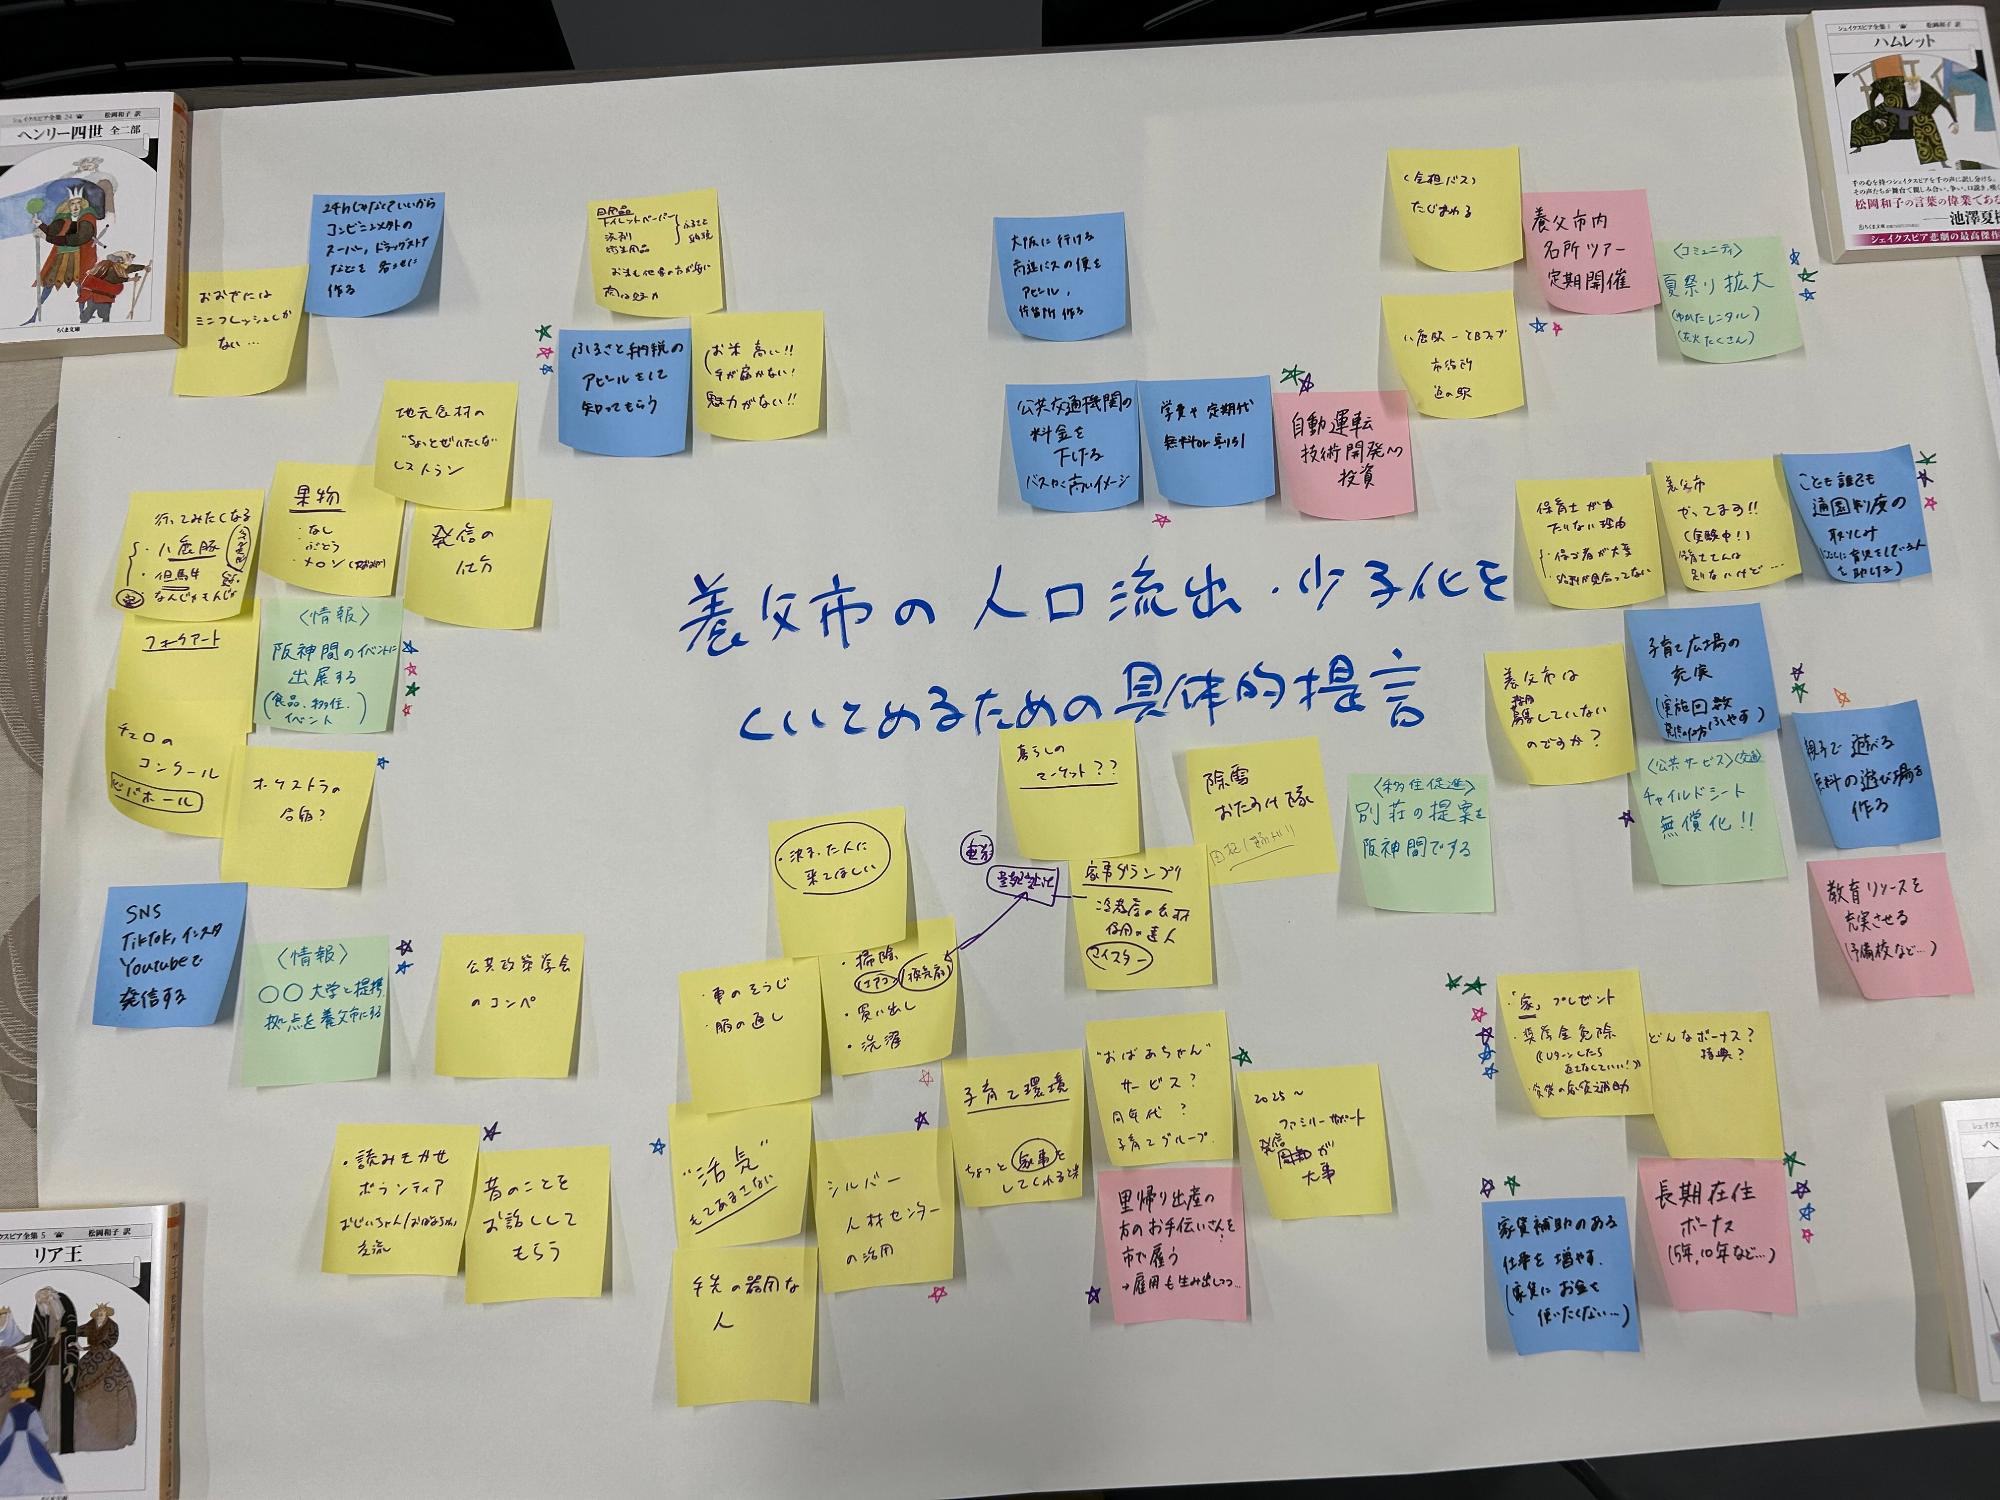 シェイクスピア全集 24 松岡和子 訳
ヘンリー四世 全二部
ちくま文庫
シェイクスピア全集 1 松岡和子 訳
ハムレット
千の心を持つシェイクスピアを千の声に訳し分ける。
松岡和子の言葉の偉業であ
──池澤夏
シェイクスピア悲劇の最高傑作
養父市の人口流出・少子化を
くいとめるための具体的提言
24hじゃなくていいから
コンビニ以外の
スーパー、ドラッグストア
などを
作る
おおやには
ミニフレッシュしか
ない…
日用品
トイレットペーパー
洗剤
衛生用品
ふるさと
納税
お米も他県の方が安い
肉は魅力
ふるさと納税の
アピールをして
知ってもらう
お米高い!!
手が届かない!
魅力がない!!
地元食材の
"ちょっとぜいたくな"
レストラン
果物
・なし
ぶどう
メロン
発信の
仕方
行ってみたくなる
・八鹿豚
・但馬牛
なんじゃもんじゃ
〈情報〉
阪神間のイベントに
出展する
(食品、移住、
イベント)
フォークアート
チェロの
コンクール
ビバホール
オーケストラの
合宿?
SNS
TikTok, インスタ
Youtubeで
発信する
〈情報〉
○○大学と提携、
拠点を養父市にする
公共政策学会
のコンペ
・読みきかせ
ボランティア
おじいちゃん/おばあちゃん
交流
昔のことを
お話しして
もらう
大阪に行ける
高速バスの便を
アピール、
停留所作る
公共交通機関の
料金を
下げる
バスめっちゃ高いイメージ
学費や定期代
無料or割引
自動運転
技術開発への
投資
(全担バス)
たじまわる
養父市内
名所ツアー
定期開催
〈コミュニティ〉
夏祭り拡大
(ゆかたレンタル)
(花火たくさん)
八鹿駅ー
市役所
道の駅
保育士が
たりない理由
・保護者が大変
・給料が見合ってない
養父市
やってます!!
(実験中!)
保育士さんは
足りないけど…
こども誰でも
通園制度の
取りくみ
を助ける)
養父市は
募集していない
のですか?
子育て広場の
充実
(実施回数
ふやす)
〈公共サービス〉〈交通〉
チャイルドシート
無償化!!
親子で遊べる
無料の遊び場を
作る
教育リソースを
充実させる
(予備校など…)
暮らしの
マーケット??
除雪
おたすけ隊
〈移住促進〉
別荘の提案を
阪神間でする
・決まった人に
来てほしい
家事グランプリ
冷蔵庫の食材
活用の達人
マイスター
・掃除
エアコン
換気扇
・買い出し
・洗濯
・車のそうじ
・服の直し
子育て環境
ちょっと家事を
してくれると楽
"おばあちゃん"
サービス?
同年代?
子育てグループ
2025~
ファミリーサポート
発信
周知が
大事
"活気"
シルバー
人材センター
の活用
手先の器用な
人
里帰り出産の
方のお手伝いさんを
市で雇う
→雇用も生み出しつつ…
・「家」プレゼント
・奨学金免除
(Uターンしたら
返さなくていい!)
どんなボーナス?
特典?
家賃補助のある
仕事を増やす.
(家賃にお金を
使いたくない…)
長期在住
ボーナス
(5年, 10年など…)
シェイクスピア全集 5 松岡和子 訳
リア王